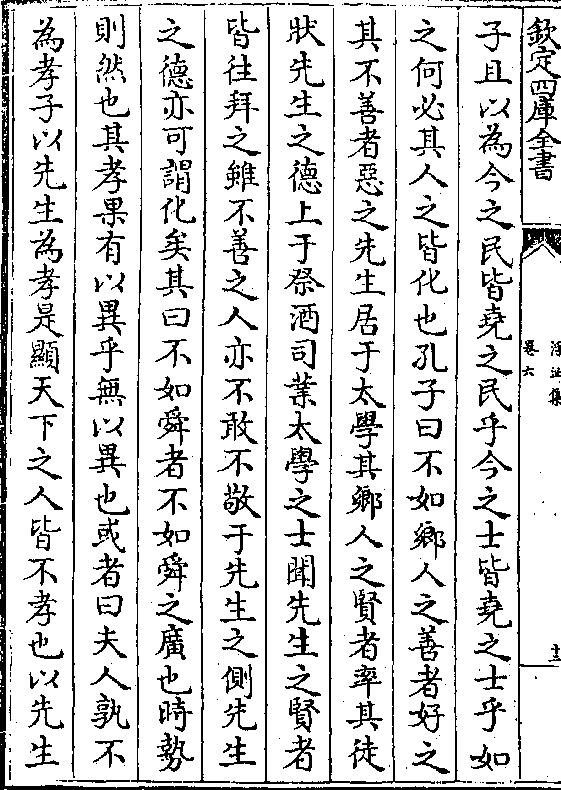 欽定四庫全書
浮沚集
卷六
十三
子且以為今之民皆堯之民乎今之士皆堯之士乎如
之何必其人之皆化也孔子曰不如鄉人之善者好之
其不善者惡之先生居于太學其鄉人之賢者率其徒
狀先生之德上于祭酒司業太學之士聞先生之賢者
皆往拜之雖不善之人亦不敢不敬于先生之側先生
之德亦可謂化矣其曰不如舜者不如舜之廣也時勢
則然也其孝果有以異乎無以異也或者曰夫人孰不
為孝子以先生為孝是顯天下之人皆不孝也以先生